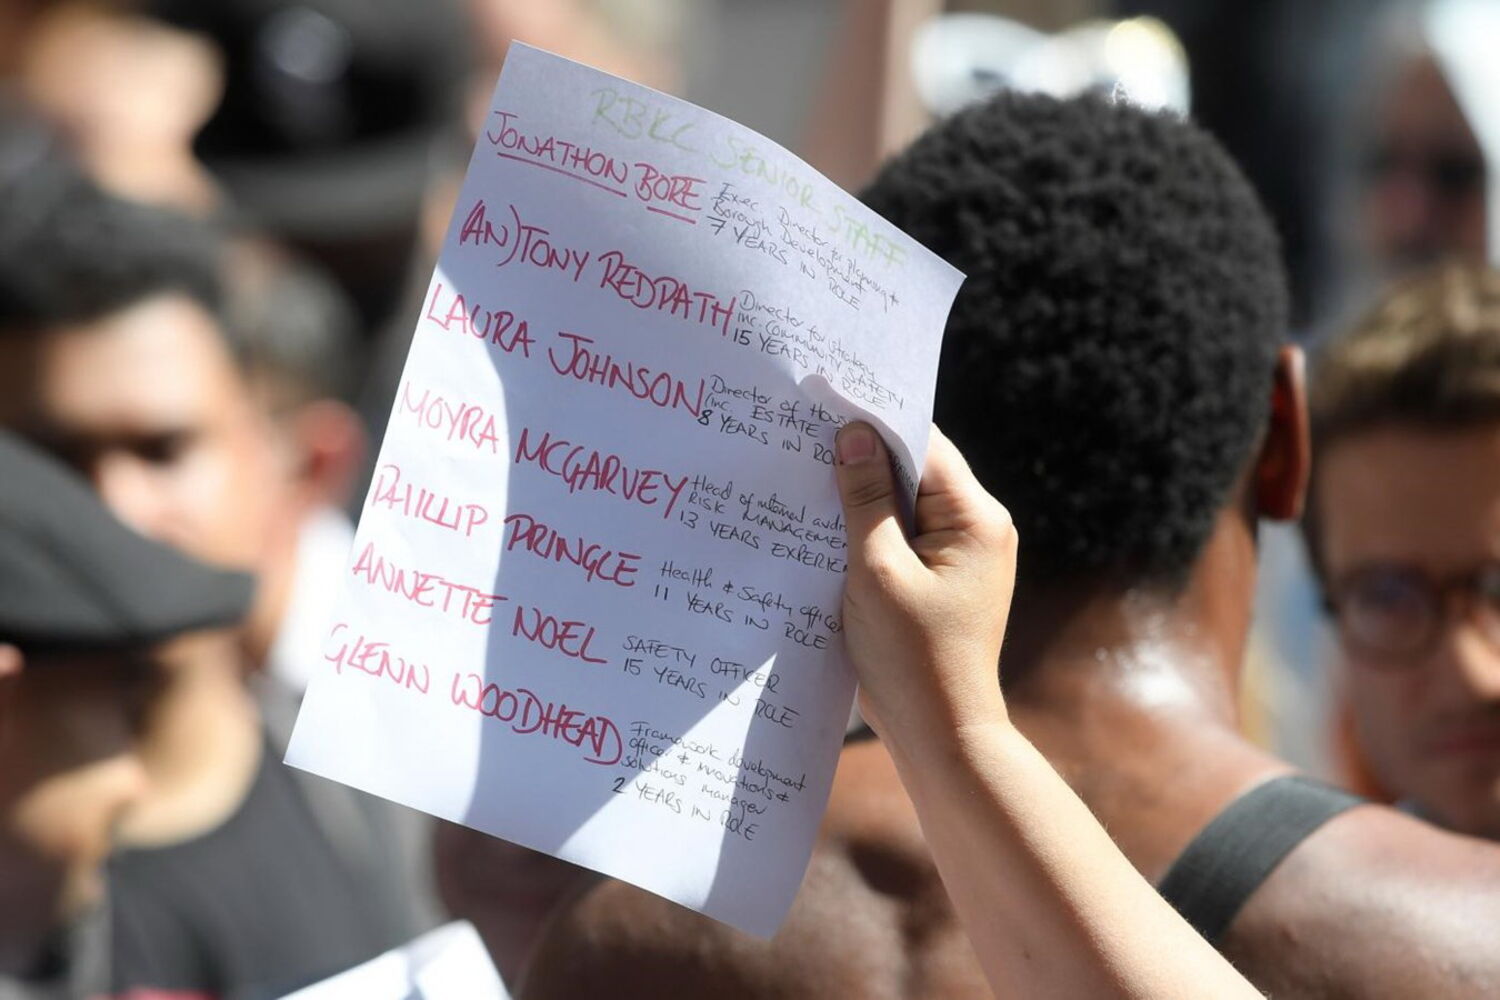 RBKC SENIOR STAFF
JONATHON BORE
Exec Director for planning +
Borough Development
7 YEARS IN ROLE
(AN)TONY REDPATH
Director for strategy
inc. COMMUNITY SAFETY
15 YEARS IN ROLE
LAURA JOHNSON
Director of Hous
(inc. ESTATE
8 YEARS IN ROL
MOYRA MCGARVEY
Head of internal audi
RISK MANAGEME
13 YEARS EXPERIE
PHILLIP PRINGLE
Health & Safety office
11 YEARS IN ROLE
ANNETTE NOEL
SAFETY OFFICER
15 YEARS IN ROLE
GLENN WOODHEAD
Framework development
officer & innovations &
solutions manager
2 YEARS IN ROLE